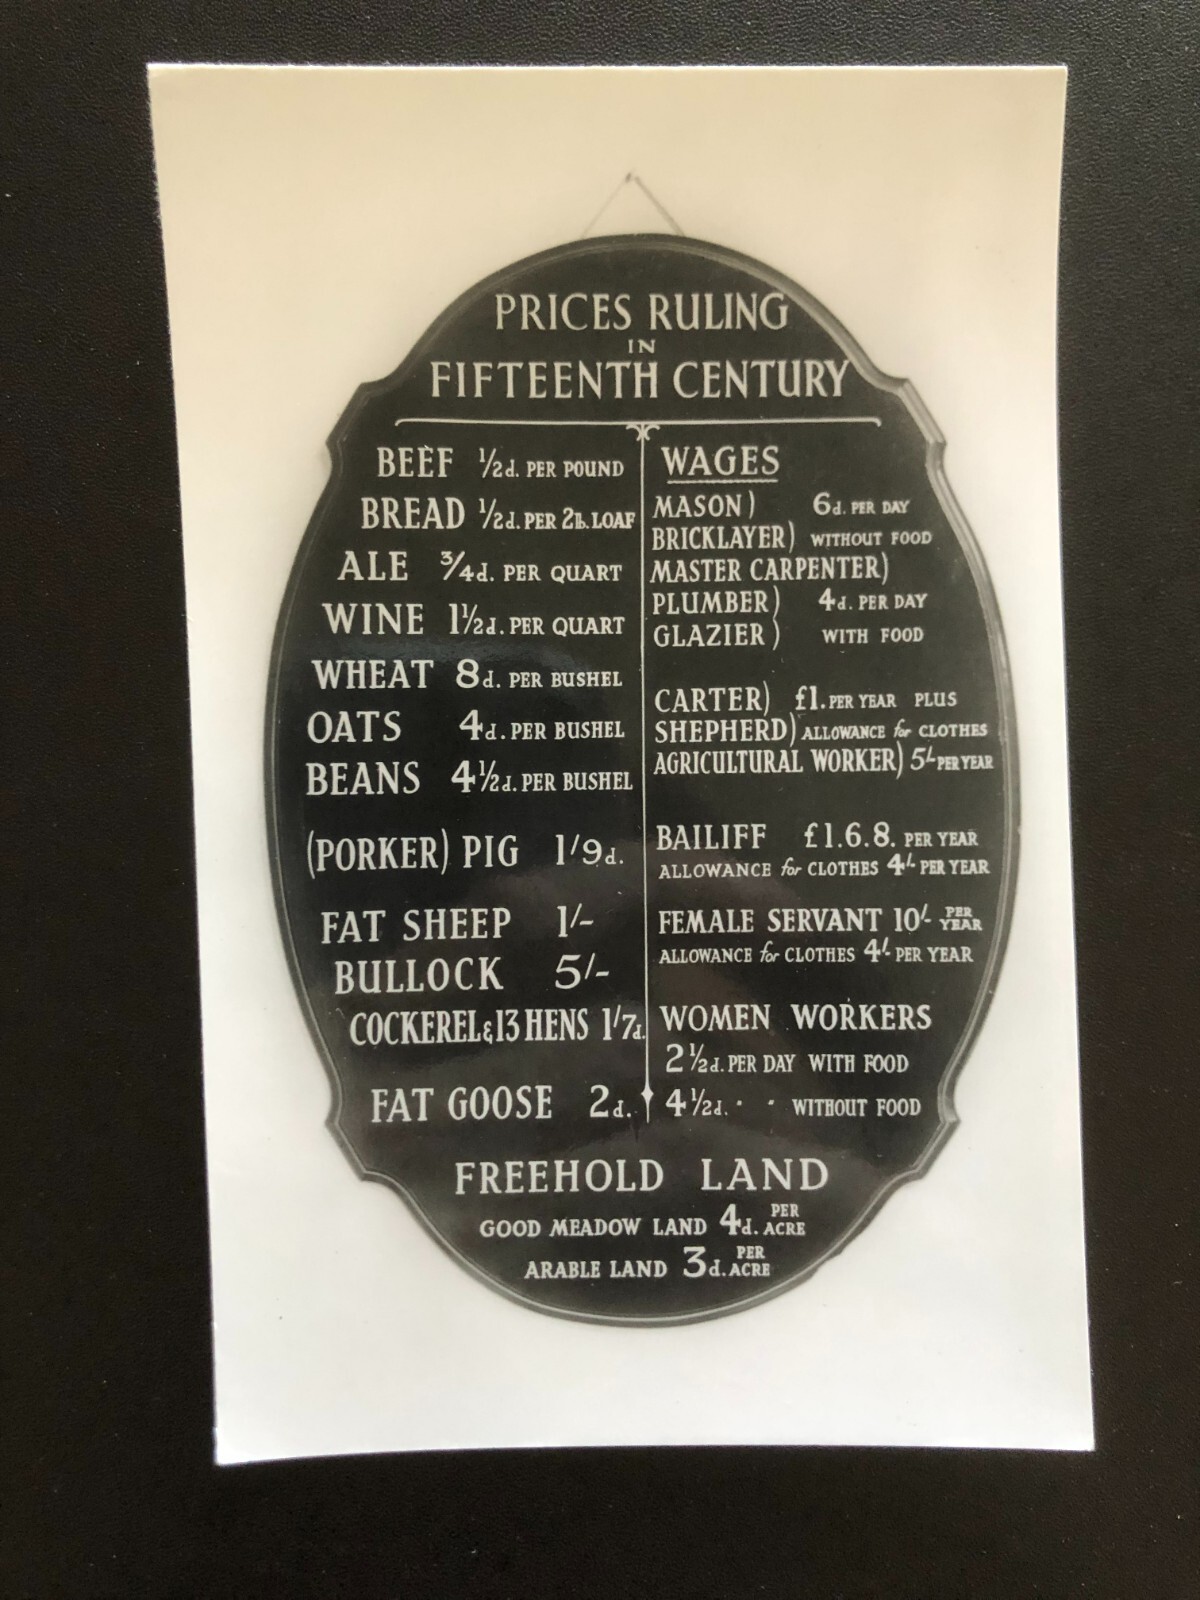 PRICES RULING
IN
FIFTEENTH CENTURY
BEEF ½d. PER POUND
BREAD ½d. PER 2lb. LOAF
ALE ¾d. PER QUART
WINE 1½d. PER QUART
WHEAT 8d. PER BUSHEL
OATS 4d. PER BUSHEL
BEANS 4½d. PER BUSHEL
(PORKER) PIG 1/9d.
FAT SHEEP 1/-
BULLOCK 5/-
COCKEREL & 13 HENS 1/7d.
FAT GOOSE 2d.
WAGES
MASON) 6d. PER DAY
BRICKLAYER) WITHOUT FOOD
MASTER CARPENTER)
PLUMBER) 4d. PER DAY
GLAZIER) WITH FOOD
CARTER) £1. PER YEAR PLUS
SHEPHERD) ALLOWANCE for CLOTHES
AGRICULTURAL WORKER) 5/- PER YEAR
BAILIFF £1.6.8. PER YEAR
ALLOWANCE for CLOTHES 4/- PER YEAR
FEMALE SERVANT 10/- PER YEAR
ALLOWANCE for CLOTHES 4/- PER YEAR
WOMEN WORKERS
2½d. PER DAY WITH FOOD
4½d. " " WITHOUT FOOD
FREEHOLD LAND
GOOD MEADOW LAND 4d. PER ACRE
ARABLE LAND 3d. PER ACRE